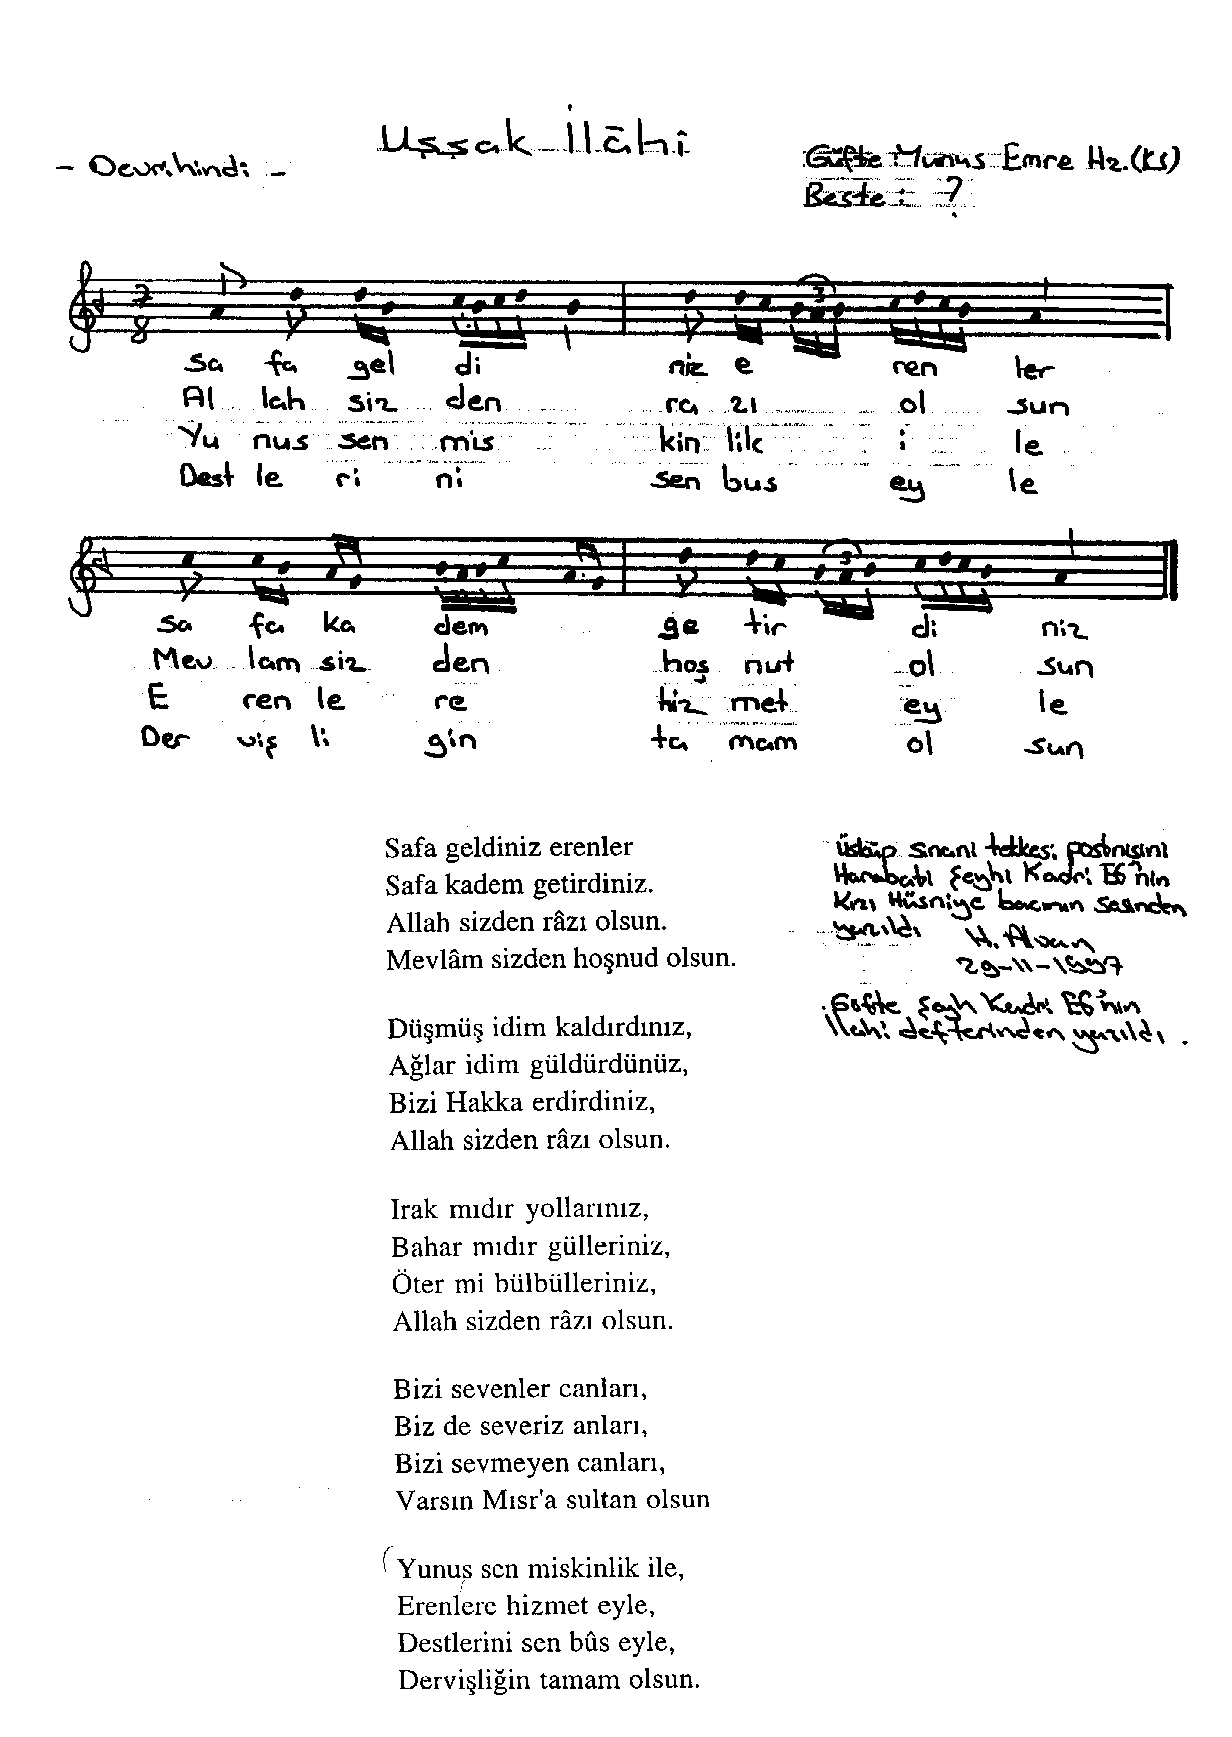 Uşşak İlâhi
- Devrihindi -
Güfte Yunus Emre Hz.(ks)
Beste : ?
7
8
3
Sa fa gel di niz e ren ler
Al lah siz den ra zı ol sun
Yu nus sen mis kin lik i le
Dest le ri ni sen bus ey le
3
Sa fa ka dem ge tir di niz
Mev lam siz den hoş nut ol sun
E ren le re hiz met ey le
Der viş li gin ta mam ol sun
Safa geldiniz erenler
Safa kadem getirdiniz.
Allah sizden râzı olsun.
Mevlâm sizden hoşnud olsun.
Düşmüş idim kaldırdınız,
Ağlar idim güldürdünüz,
Bizi Hakka erdirdiniz,
Allah sizden râzı olsun.
Irak mıdır yollarınız,
Bahar mıdır gülleriniz,
Öter mi bülbülleriniz,
Allah sizden râzı olsun.
Bizi sevenler canları,
Biz de severiz anları,
Bizi sevmeyen canları,
Varsın Mısr'a sultan olsun
Yunus sen miskinlik ile,
Erenlere hizmet eyle,
Destlerini sen bûs eyle,
Dervişliğin tamam olsun.
Üsküp sinani tekkesi postnişini
Harabati Şeyhi Kadri Ef'nin
Kızı Hüsniye bacının sesinden
yazıldı
29-11-1997
Güfte Şeyh Kadri Ef'nin
ilahi defterinden yazıldı.